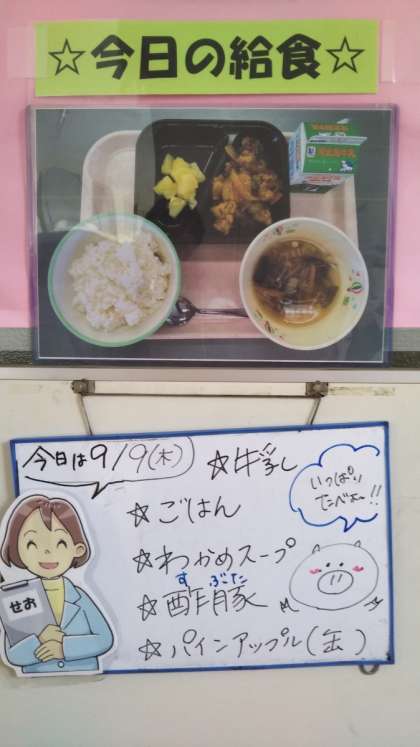 ☆今日の給食☆
今日は9/9(木)
☆牛乳
☆ごはん
いっぱい
たべよー!!
☆わかめスープ
す ぶた
☆酢豚
☆パインアップル(缶)
せお